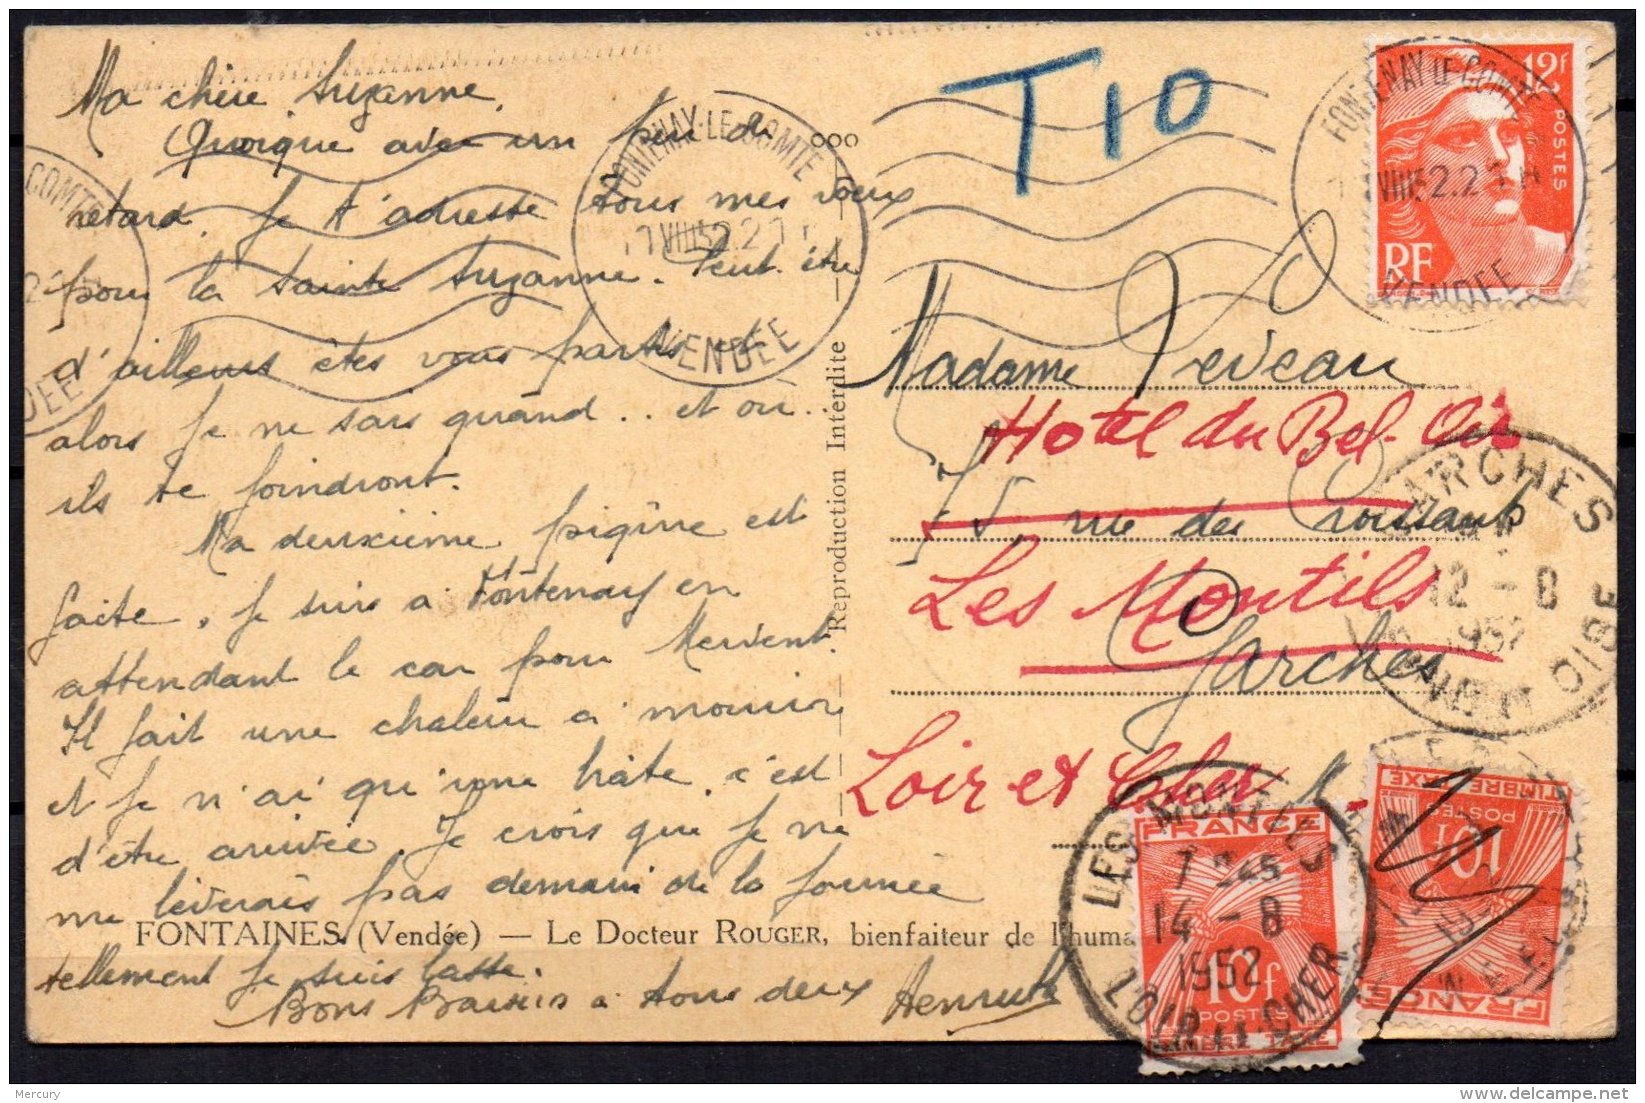 Ma chère Suzanne,
Quoique avec un peu de
retard, je t'adresse tous mes vœux
pour la Sainte Suzanne. Peut être
d'ailleurs êtes vous partis et
alors je ne sais quand.. et où..
ils te joindront.
Ma deuxième piqûre est
faite, je suis à Fontenay en
attendant le car pour Mervent.
Il fait une chaleur à mourir
et je n'ai qu'une hâte, c'est
d'être arrivée. Je crois que je ne
me lèverais pas demain de la journée
tellement je suis lasse.
Bons Baisers à tous deux
FONTAINES (Vendée) — Le Docteur ROUGER, bienfaiteur de l'huma
Reproduction Interdite
T 10
Madame
Hotel du Bel-Air
15 rue des
Les Montils
Garches
Loir et Cher
12f
POSTES
RF
FONTENAY LE COMTE
VIII 52.2
VENDEE
FONTENAY-LE-COMTE
VIII 52.2
VENDEE
COMTE
DEE
GARCHES
12 - 8
1952
SEINE ET OISE
LES MONTILS
14 - 8
1952
LOIR ET CHER
FRANCE
10f
POSTES
TIMBRE TAXE
TIMBRE TAXE
POSTES
10f
FRANCE
Mercury
www.delcampe.net